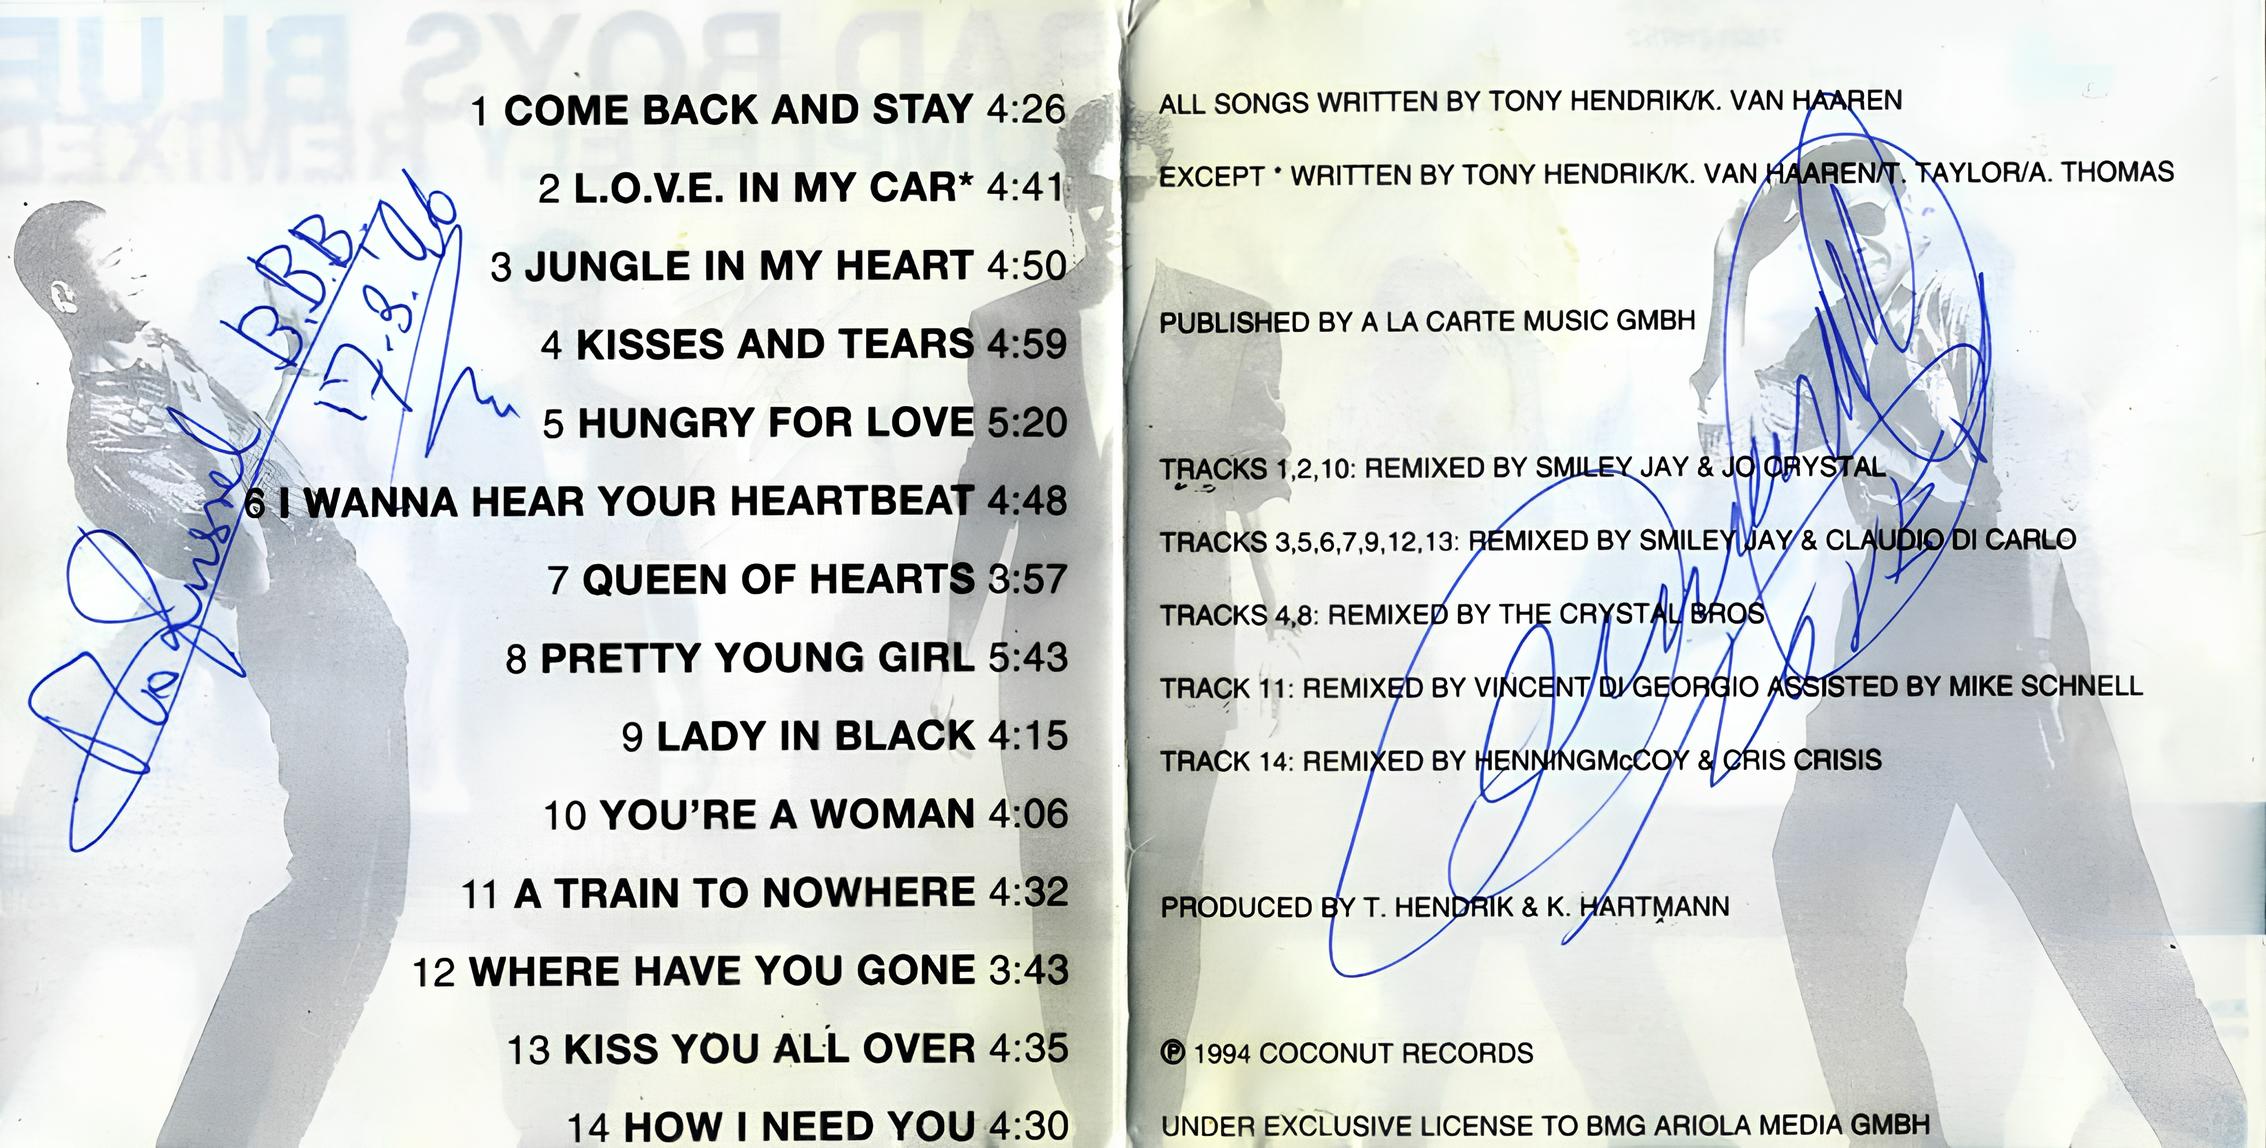 1 COME BACK AND STAY 4:26
2 L.O.V.E. IN MY CAR* 4:41
3 JUNGLE IN MY HEART 4:50
4 KISSES AND TEARS 4:59
5 HUNGRY FOR LOVE 5:20
6 I WANNA HEAR YOUR HEARTBEAT 4:48
7 QUEEN OF HEARTS 3:57
8 PRETTY YOUNG GIRL 5:43
9 LADY IN BLACK 4:15
10 YOU'RE A WOMAN 4:06
11 A TRAIN TO NOWHERE 4:32
12 WHERE HAVE YOU GONE 3:43
13 KISS YOU ALL OVER 4:35
14 HOW I NEED YOU 4:30
B.B.B.
ALL SONGS WRITTEN BY TONY HENDRIK/K. VAN HAAREN
EXCEPT * WRITTEN BY TONY HENDRIK/K. VAN HAAREN/T. TAYLOR/A. THOMAS
PUBLISHED BY A LA CARTE MUSIC GMBH
TRACKS 1,2,10: REMIXED BY SMILEY JAY & JO CRYSTAL
TRACKS 3,5,6,7,9,12,13: REMIXED BY SMILEY JAY & CLAUDIO DI CARLO
TRACKS 4,8: REMIXED BY THE CRYSTAL BROS
TRACK 11: REMIXED BY VINCENT DI GEORGIO ASSISTED BY MIKE SCHNELL
TRACK 14: REMIXED BY HENNINGMcCOY & CRIS CRISIS
PRODUCED BY T. HENDRIK & K. HARTMANN
℗ 1994 COCONUT RECORDS
UNDER EXCLUSIVE LICENSE TO BMG ARIOLA MEDIA GMBH